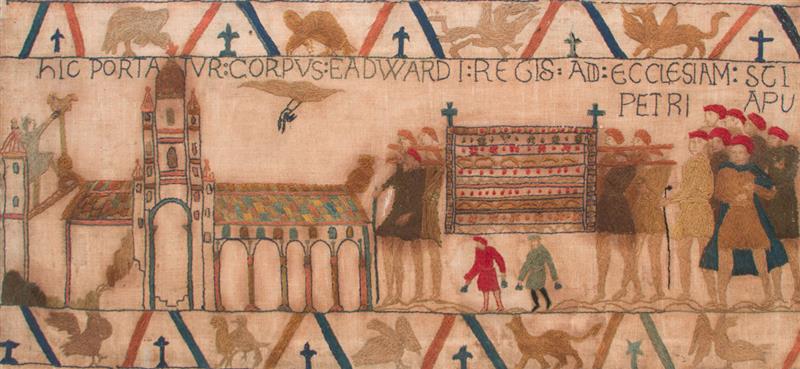 hIC PORTATVR:CORPVS:EADWARDI:REGIS:AD:ECCLESIAM:SCI
PETRI APU